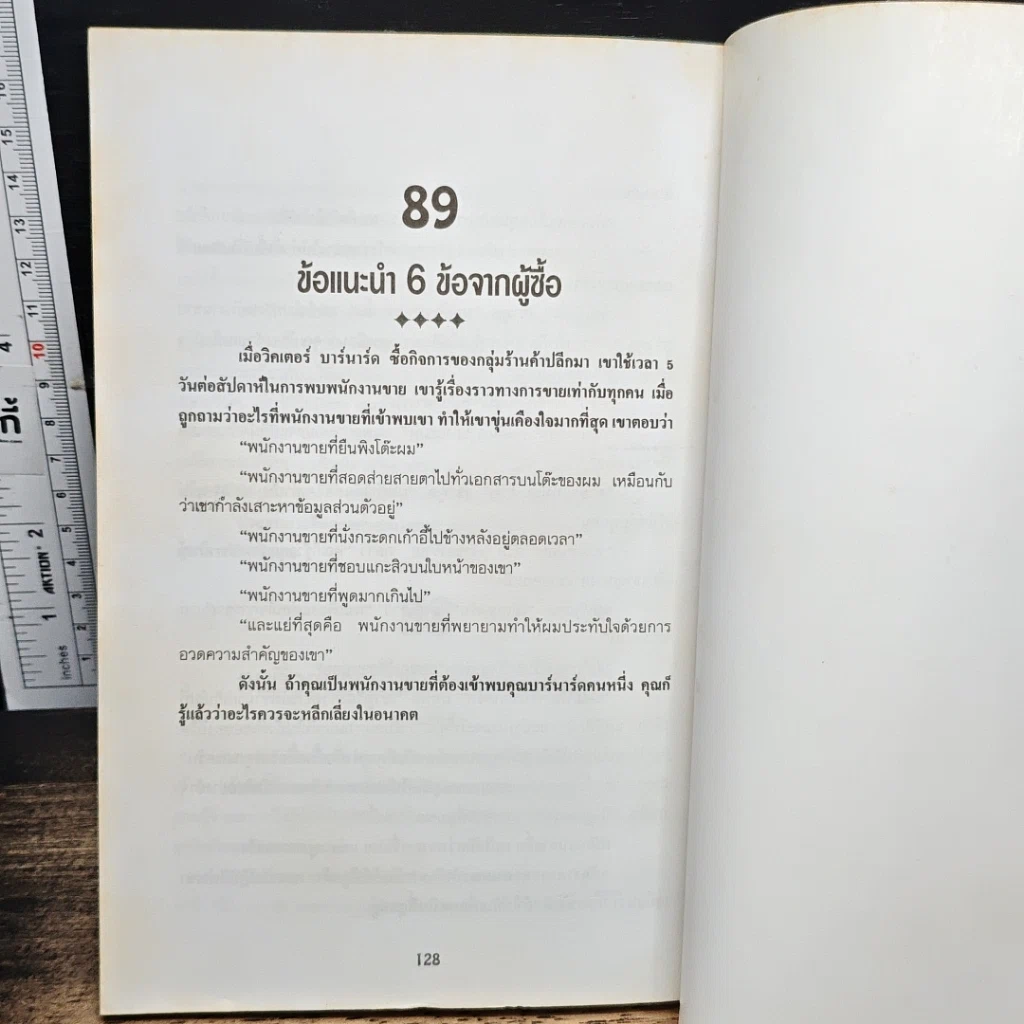 89
ข้อแนะนำ 6 ข้อจากผู้ซื้อ
เมื่อวิคเตอร์ บาร์นาร์ด ซื้อกิจการของกลุ่มร้านค้าปลีกมา เขาใช้เวลา 5
วันต่อสัปดาห์ในการพบพนักงานขาย เขารู้เรื่องราวทางการขายเท่ากับทุกคน เมื่อ
ถูกถามว่าอะไรที่พนักงานขายที่เข้าพบเขา ทำให้เขาขุ่นเคืองใจมากที่สุด เขาตอบว่า
“พนักงานขายที่ยืนพิงโต๊ะผม”
“พนักงานขายที่สอดส่ายสายตาไปทั่วเอกสารบนโต๊ะของผม เหมือนกับ
ว่าเขากำลังเสาะหาข้อมูลส่วนตัวอยู่”
“พนักงานขายที่นั่งกระดกเก้าอี้ไปข้างหลังอยู่ตลอดเวลา”
“พนักงานขายที่ชอบแกะสิวบนใบหน้าของเขา”
“พนักงานขายที่พูดมากเกินไป”
“และแย่ที่สุดคือ พนักงานขายที่พยายามทำให้ผมประทับใจด้วยการ
อวดความสำคัญของเขา”
ดังนั้น ถ้าคุณเป็นพนักงานขายที่ต้องเข้าพบคุณบาร์นาร์ดคนหนึ่ง คุณก็
รู้แล้วว่าอะไรควรจะหลีกเลี่ยงในอนาคต
128
inches
1
2
4
AKTION
1
2
3
4
5
6
7
8
9
10
11
12
13
14
15